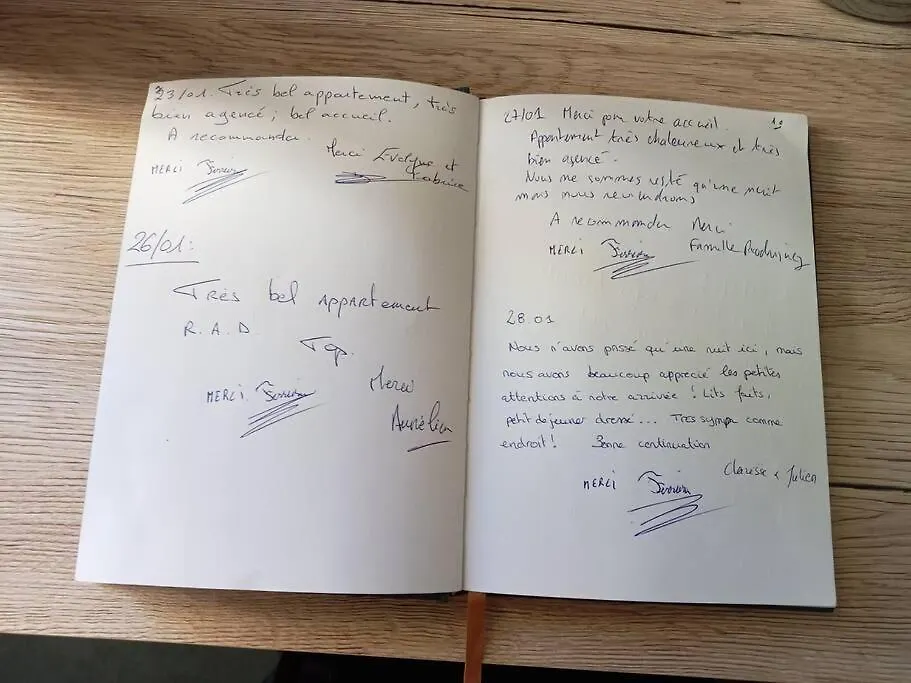 23/01. Très bel appartement, très
bien agencé; bel accueil.
A recommander.
Merci Evelyne et
Fabrice
MERCI
26/01:
Très bel appartement
R.A.D.
Top.
Merci
Aurélien
MERCI
27/01 Merci pour votre accueil.
Appartement très chaleureux et très
bien agencé.
Nous me sommes resté qu'une nuit
mais nous reviendrons
A recommander Merci
Famille
MERCI
28.01
Nous n'avons passé qu'une nuit ici, mais
nous avons beaucoup apprecié les petites
attentions à notre arrivée! Lits faits,
petit dejeuner dressé... Tres sympa comme
endroit! Bonne continuation
Clarisse & Julien
MERCI